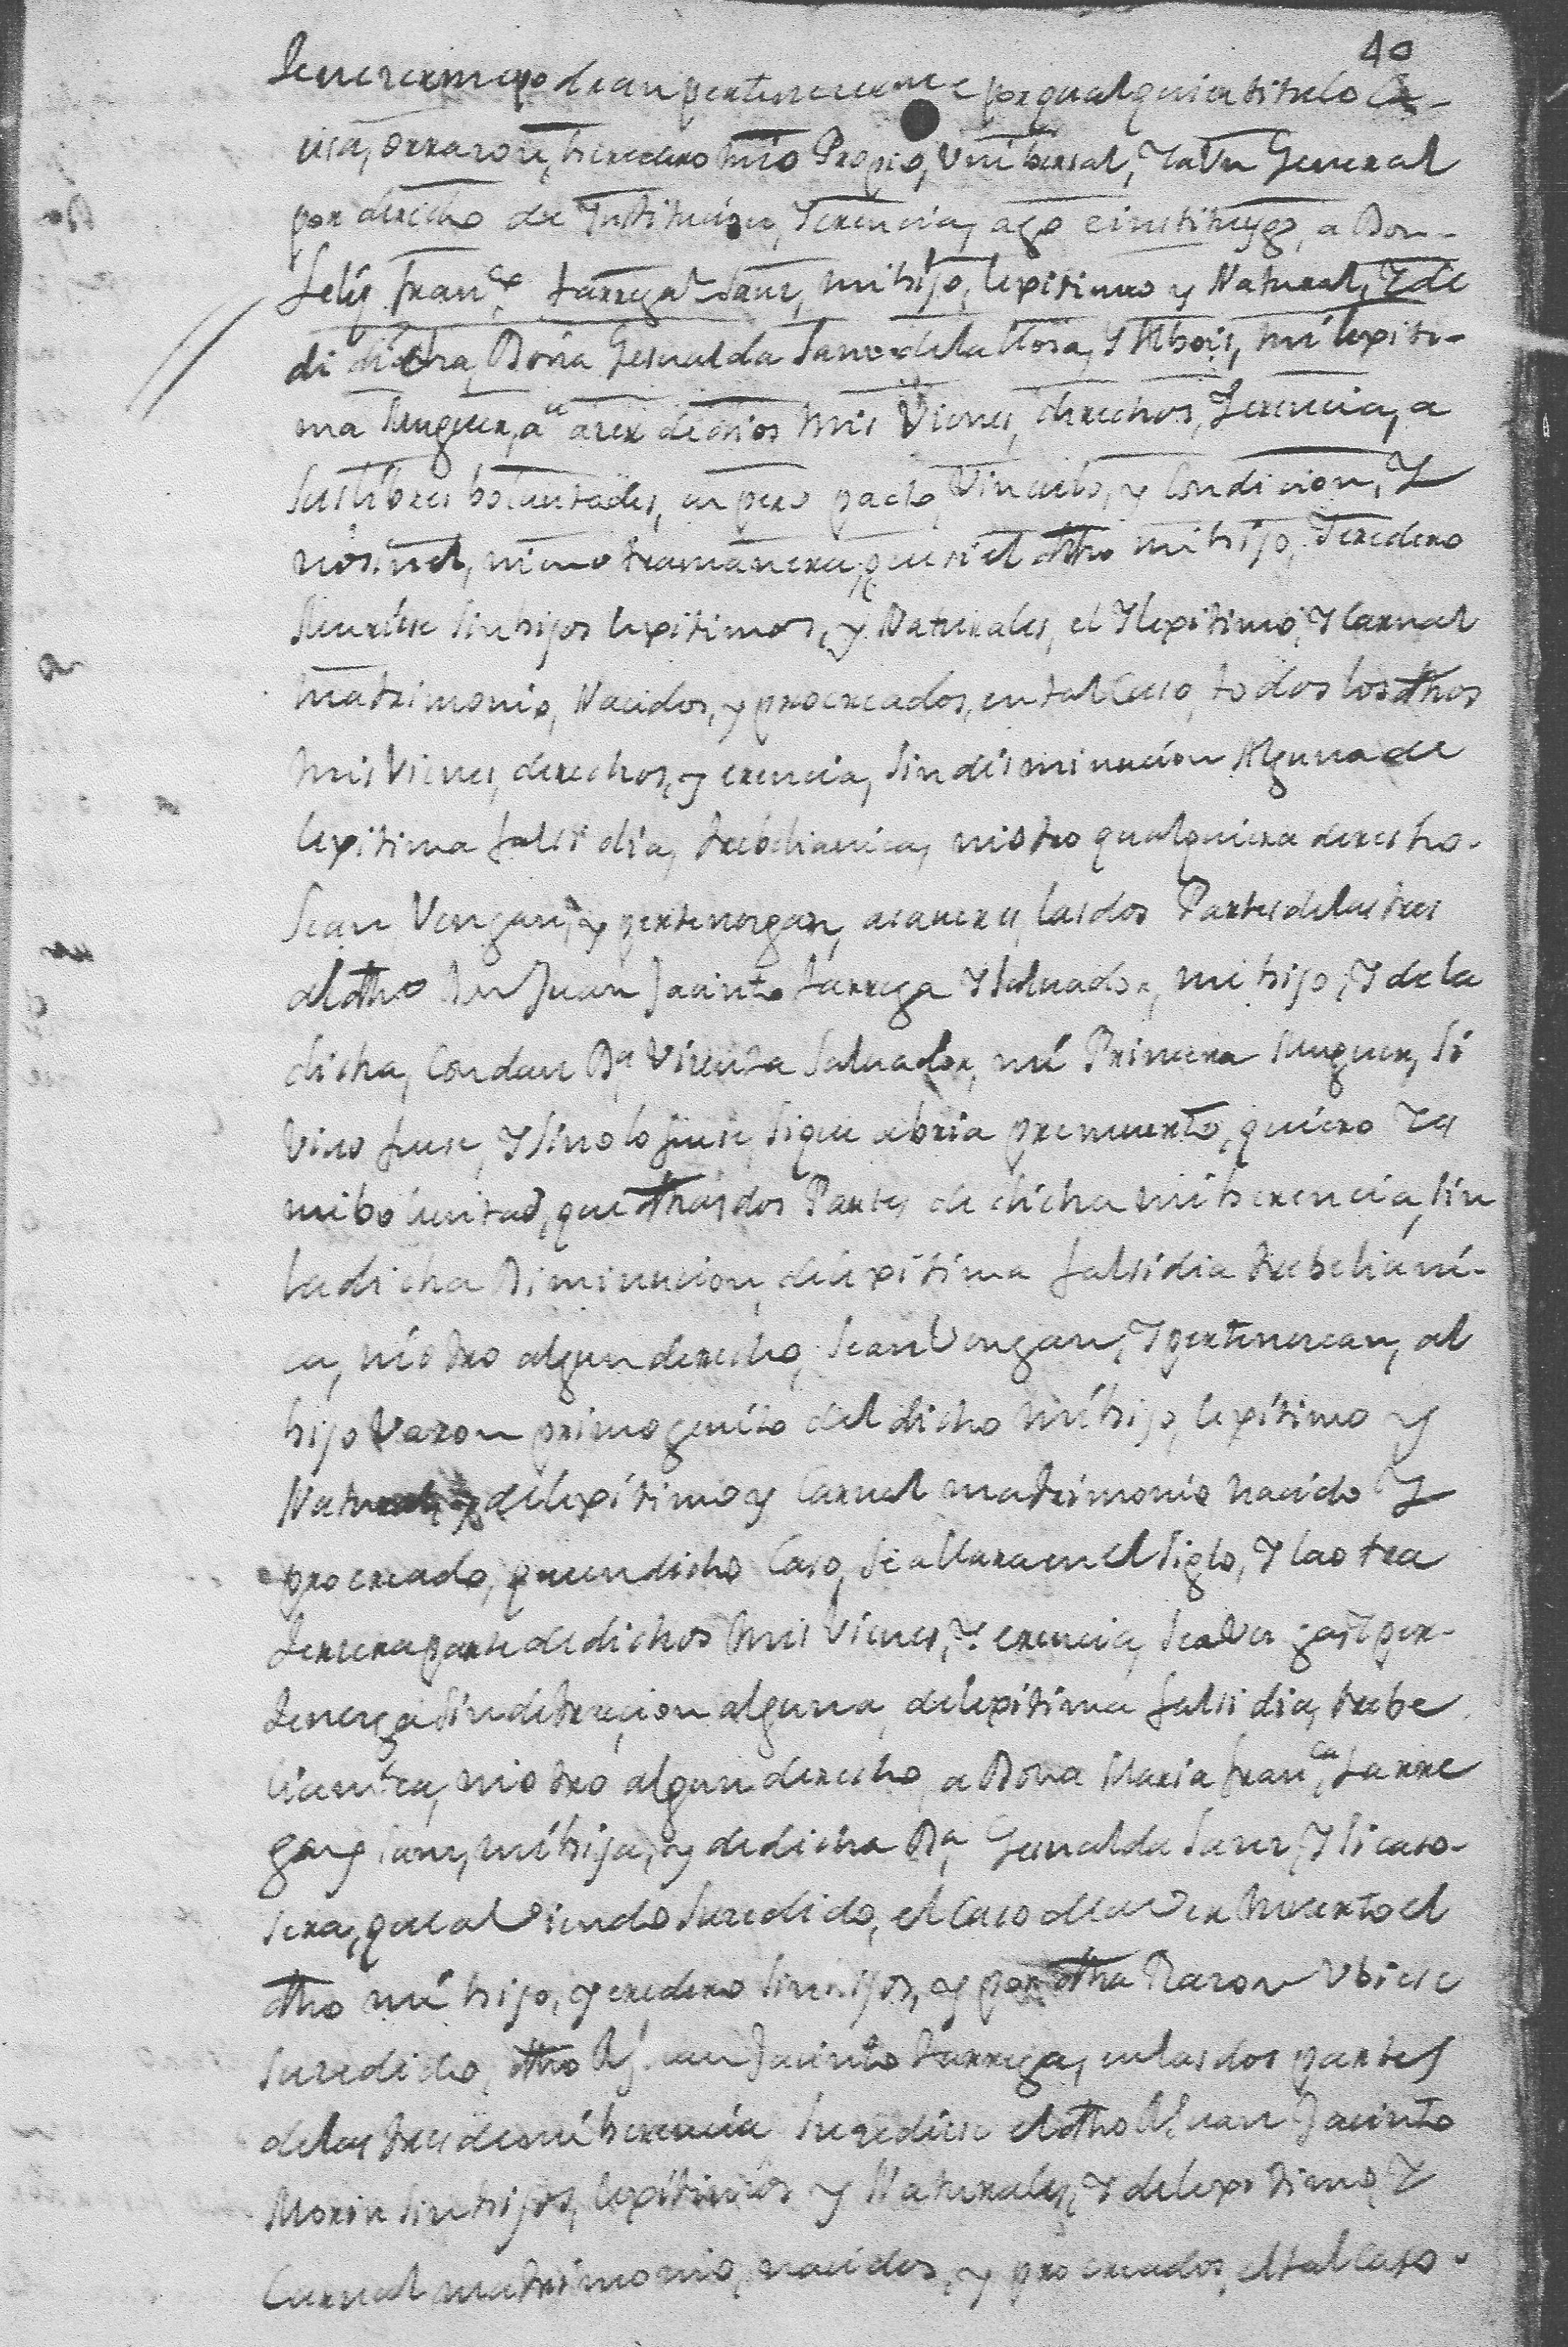 40
pertenecerme por qualquier titulo Ca-
usa, o rrazon, heredero mio Propio, Unibersal, Y aun General
por derecho de Ynstitucion, Y erencia, ago e instituygo, a Don-
Felis Fran.co Tarrega Y Sanz, mi hijo, lexitimo y Natural, Y de
di dicha, Doña Gesualda Sanz de la Llosa, Y Albois, mi lexiti-
ma Muguer, a acer de dhos mis Vienes, derechos, Y erencia, a
sus libres boluntades, en pero pacto, Vinculo, y Condicion, Y
no sin el, ni en otra manera, que si el dho mi hijo, Y eredero
Muriese sin hijos lexitimos, y Naturales, el Y lexitimo, Y Carnal
Matrimonio, Nacidos, y procreados, en tal Caso, todos los dhos
mis Vienes, derechos, y erencia, sin disminucion Alguna de
lexitima falsidia, trebelianica, ni otro qualquiera derecho.
Sean, Vengan, y pertenezgan, a saver es, las dos Partes de las tres
al dho Dn Juan Jacinto Tarrega Y Saluador, mi hijo, Y de la
dicha, Condan Da Visenta Saluador, mi Primera Muguer, Si
Vivo fuese, Y sino lo fuese, si que abria premuerto, quiero Y es
mi boluntad, que dhas dos Partes de dicha mi herencia, sin
la dicha Diminucion, de lexitima falsidia trebeliani-
ca, ni otro algun derecho, Sean Vengan, Y pertenescan, al
hijo Varon primogenito del dicho mi hijo, lexitimo y
Natural, y de lexitimo y Carnal matrimonio nacido Y
procreado, que en dicho Caso, se allara en el Siglo, Y la otra
tersera parte de dichos mis Vienes, Y erencia, Sea Venga, Y per-
tenezca sin detracion alguna, de lexitima falsidia, trebe
lianica, ni otro algun derecho, a Doña Maria Fran.ca Tarre
ga y Sanz, mi hija, y de dicha Da Gesualda Sanz, Y si caso-
sera, que abiendo Susedido, el Caso de aver Muerto el
dho mi hijo, y eredero sin hijos, y por dha Razon Ubiese
Susedido, dho Dn Juan Jacinto Tarrega, en las dos partes
de las tres de mi herencia Susediese el dho Dn Juan Jacinto
Morir sin hijos, lexitimos y Naturales, Y de lexitimo, Y
Carnal matrimonio, nacidos, y procreados, el tal caso.